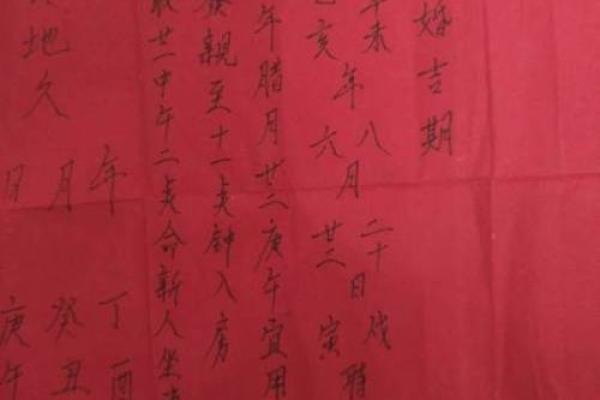 婚吉期
未年八月二十日戌時
亥六廿二寅
年腊月廿二庚午宜用
親至十一点钟入房
廿一中午二点合新人坐
年丁酉
地久月癸丑
日庚午